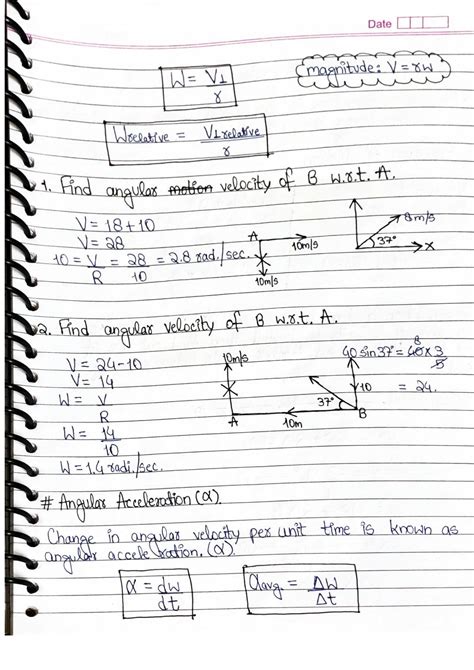 Date
W = V⊥ / r
magnitude: V = rw
Wrelative = V⊥relative / r
1. Find angular motion velocity of B w.r.t. A.
V = 18 + 10
V = 28
10 = V/R = 28/10 = 2.8 rad./sec.
A
10m/s
10m/s
8m/s
37°
X
2. Find angular velocity of B w.r.t. A.
V = 24-10
V = 14
W = V/R
W = 14/10
W = 1.4 radi./sec.
10m/s
A
10m
37°
B
10
40 sin 37° = 40 x 3/5
8
= 24.
# Angular Acceleration (α).
Change in angular velocity per unit time is known as
angular acceleration. (α)
α = dw/dt
αavg. = ΔW/Δt